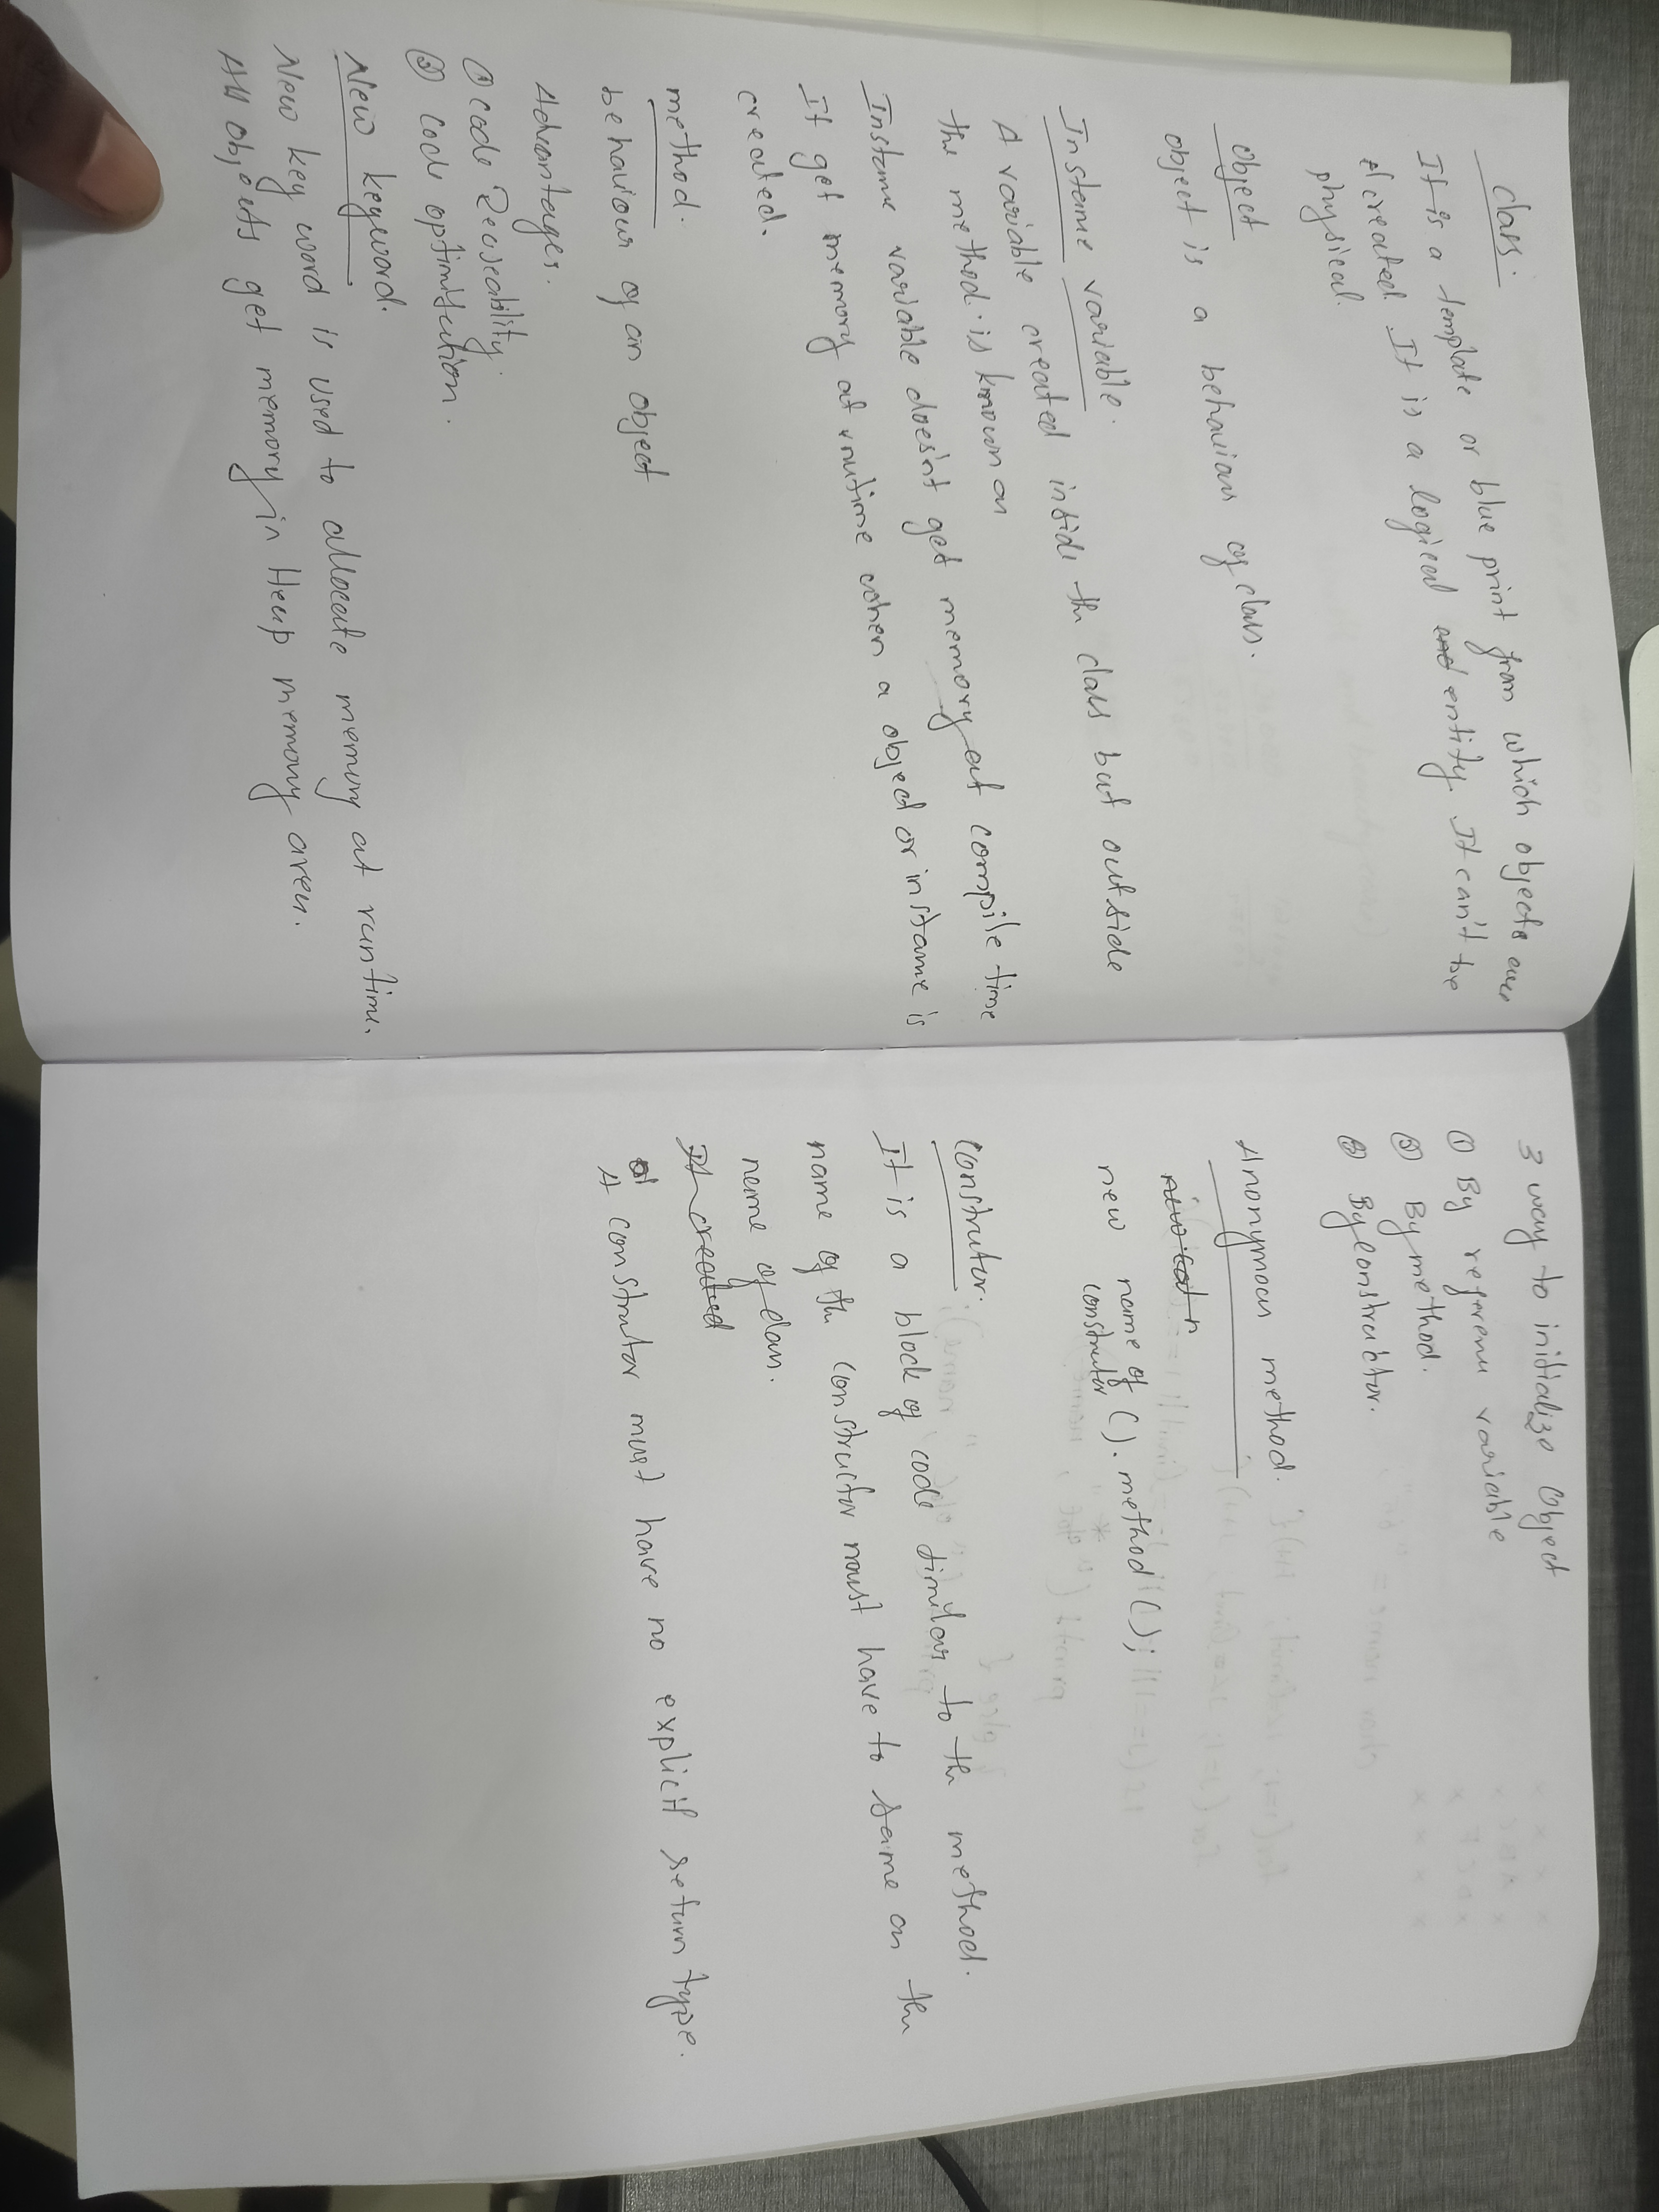 class.
It is a template or blue print from which objects are
created. It is a logical entity. It can't be
physical.
object
object is a behaviour of class.
Instame variable.
A variable created inside the class but outside
the method. is known as
Instame variable doesn't get memory at compile time
It get memory at runtime when a object or instame is
created.
method.
behaviour of an object
Advantages.
① code Reuseability.
② code optimization.
New keyword.
New key word is used to allocate memory at runtime.
All objects get memory in Heap memory area.
3 way to initialize Object
① By referenu variable
② By method.
③ By constructor.
Anonymous method.
new name of construtor (). method ();
Construtor.
It is a block of code similar to the method.
name of the constructor must have to same as the
name of class.
It created
A construtor must have no explicit return type.